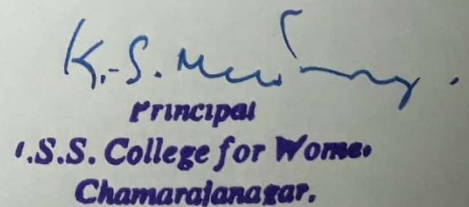 K.-S.
Principal
.S.S. College for Wome
Chamarajanagar.